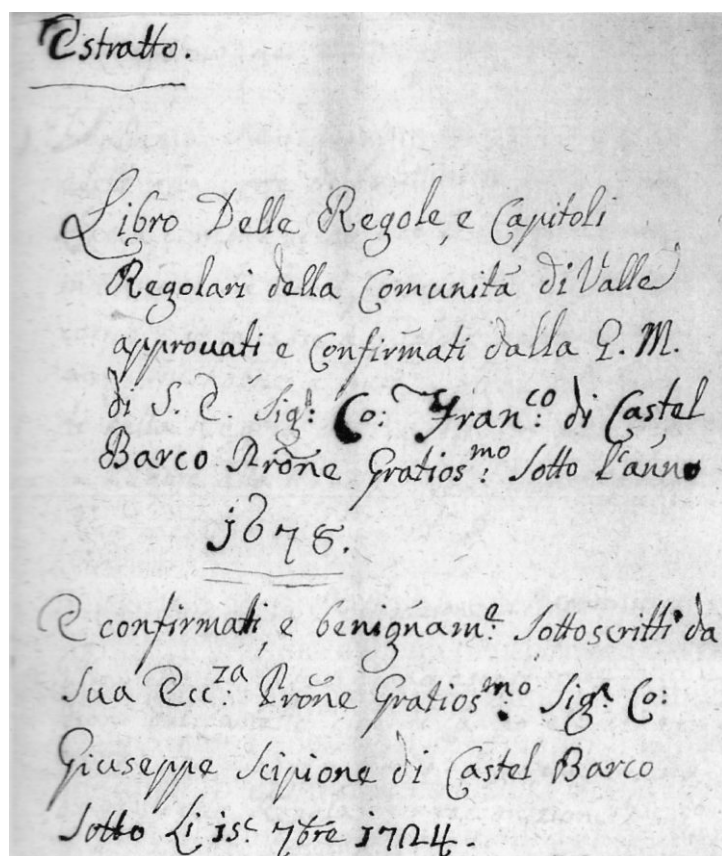 Estratto.
Libro Delle Regole, e Capitoli
Regolari della Comunità di Valle
approuati e Confirmati dalla G. M.
di S. E. Sig.r Co: Fran.co di Castel
Barco Prõne Gratios.mo Sotto l'anno
1678.
E confirmati, e benignam.e Sottoscritti da
Sua Ecc.za Prõne Gratios.mo Sig.r Co:
Giuseppe Scipione di Castel Barco
Sotto Li 7bre 1724.